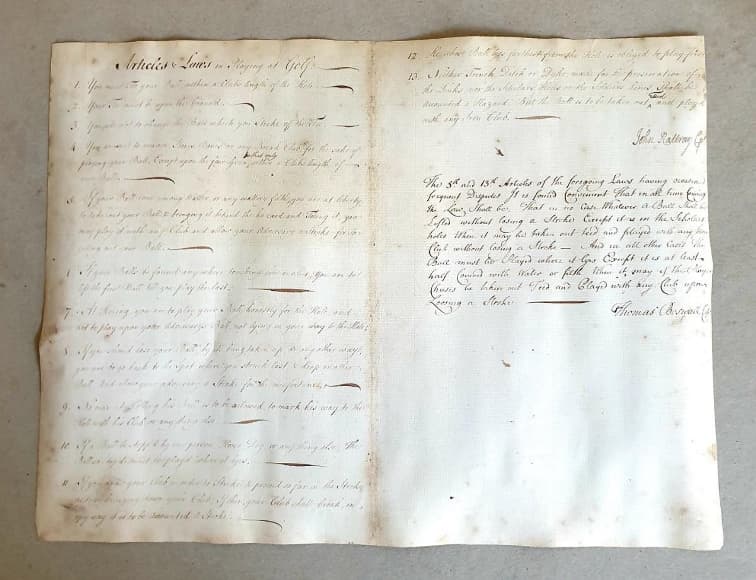 Articles & Laws in Playing at Golf
1. You must Tee your Ball within a Clubs length of the Hole.
2. Your Tee must be upon the Ground.
3. You are not to change the Ball which you Stroke off the Tee.
4. You are not to remove Stones Bones or any Break Club for the sake of
playing your Ball, Except upon the fair Green, & that only
within a Clubs length of
your Ball.
5. If your Ball come among Water or any watery filth, you are at liberty
to take out your Ball & bringing it behind the hazard and Teeing it you
may play it with any Club and allow your Adversary a Stroke for so
getting out your Ball.
6. If your Balls be found any where touching one another, You are to
lift the first Ball till you play the last.
7. At Holing you are to play your Ball honestly for the Hole, and
not to play upon your Adversarys Ball, not lying in your way to the Hole.
8. If you should lose your Ball, by its being taken up, or any other way,
you are to go back to the Spot where you struck last & drop another
Ball And allow your adversary a Stroke for the misfortune.
9. No man at Holling his Ball is to be allowed to mark his way to the
Hole with his Club or any thing else.
10. If a Ball be stopp'd by any person, Horse, Dog or any thing else, The
Ball so stop'd must be play'd where it lyes.
11. If you draw your Club in order to Stroke & proceed so far in the Stroke
as to be bringing down your Club; If then your Club shall break in
any way it is to be accounted a Stroke.
12. He whose Ball lyes farthest from the Hole is obliged to play first.
13. Neither Trench, Ditch or Dyke made for the preservation of
the Links, nor the Scholars Holes or the Soldiers Lines, Shall be
accounted a Hazard, But the Ball is to be taken out Teed and play'd
with any Iron Club.
John Rattray Cpt
The 5th and 13th Articles of the foregoing Laws having occasioned
frequent Disputes It is found Convenient That in all time Coming
the Law Shall be, That in no Case Whatever a Ball Shall be
Lifted without losing a Stroke Except it is in the Scholars
holes When it may be taken out teed and played with any Iron
Club without losing a Stroke — And in all other Cases The
Ball must be Played where it lyes Except it is at least
half Covered with Water or filth When it may if the Player
Chuses be taken out Teed and Played with any Club upon
Loosing a Stroke
Thomas Boswall Cpt